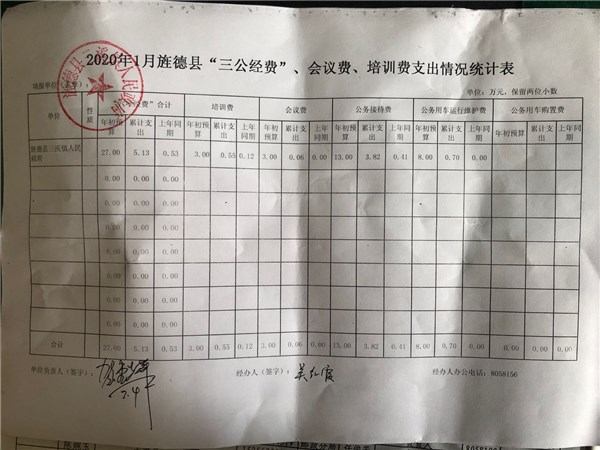 2020年1月旌德县“三公经费”、会议费、培训费支出情况统计表
填报单位（盖章）： 单位：万元，保留两位小数
单位 性质 经费”合计 培训费 会议费 公务接待费 公务用车运行维护费 公务用车购置费
年初预算 累计支出 上年同期 年初预算 累计支出 上年同期 年初预算 累计支出 上年同期 年初预算 累计支出 上年同期 年初预算 累计支出 上年同期 年初预算 累计支出 上年同期
旌德县三溪镇人民政府 27.00 5.13 0.53 3.00 0.55 0.12 3.00 0.06 0.00 13.00 3.82 0.41 8.00 0.70 0.00
0.00 0.00 0.00
0.00 0.00 0.00
0.00 0.00 0.00
0.00 0.00 0.00
0.00 0.00 0.00
0.00 0.00 0.00
合计 27.00 5.13 0.53 3.00 0.55 0.12 3.00 0.06 0.00 13.00 3.82 0.41 8.00 0.70 0.00 0.00 0.00 0.00
单位负责人（签字）： 经办人（签字）： 经办人办公电话：8058156